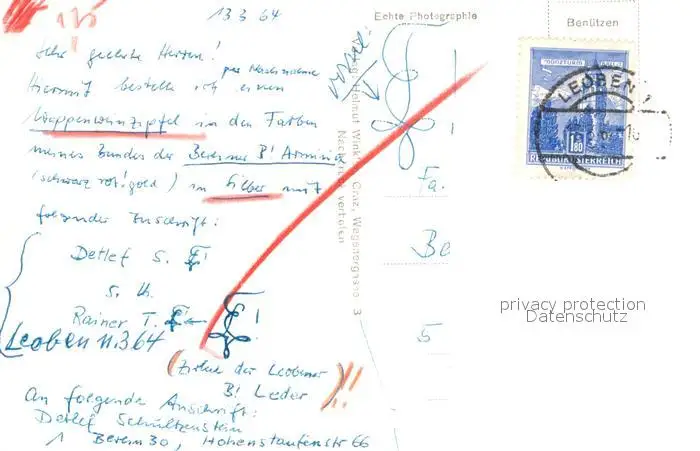 135
13 3 64
Sehr geehrte Herren!
per Nachnahme
Hiermit bestelle ich einen
Wappenweinzipfel in den Farben
meines Bundes der Berliner B! Arminia
(schwarz rot gold) in Silber mit
folgender Inschrift:
Detlef S.
s. lb.
Rainer T.
Leoben 11.3 64
(Zirkel der Leobener
B! Leder)!!
An folgende Anschrift:
Detlef Schultzenstein
1 Berlin 30, Hohenstaufenstr 66
Echte Photographie
Helmut Winkl Graz, Wegenergasse 3
Nachdruck verboten
Benützen
Fa.
Be
5
LEOBEN 1
1.80
REPUBLIK ÖSTERREICH
privacy protection
Datenschutz